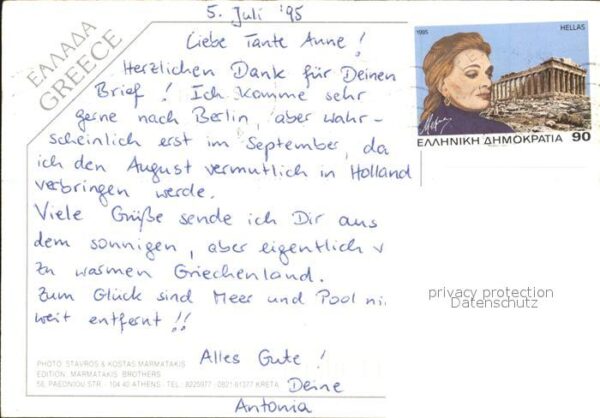 5. Juli '95
Liebe Tante Anne!
Herzlichen Dank für Deinen
Brief! Ich komme sehr
gerne nach Berlin, aber wahr-
scheinlich erst im September, da
ich den August vermutlich in Holland
verbringen werde.
Viele Grüße sende ich Dir aus
dem sonnigen, aber eigentlich v
zu warmen Griechenland.
Zum Glück sind Meer und Pool ni
weit entfernt!!
Alles Gute!
Deine
Antonia
ΕΛΛΑΔΑ
GREECE
1995
HELLAS
ΕΛΛΗΝΙΚΗ ΔΗΜΟΚΡΑΤΙΑ 90
privacy protection
Datenschutz
PHOTO: STAVROS & KOSTAS MARMATAKIS
EDITION: MARMATAKIS BROTHERS
56, PAEONIOU STR · 104 40 ATHENS · TEL.: 8225977 · 0821-61377 KRETA